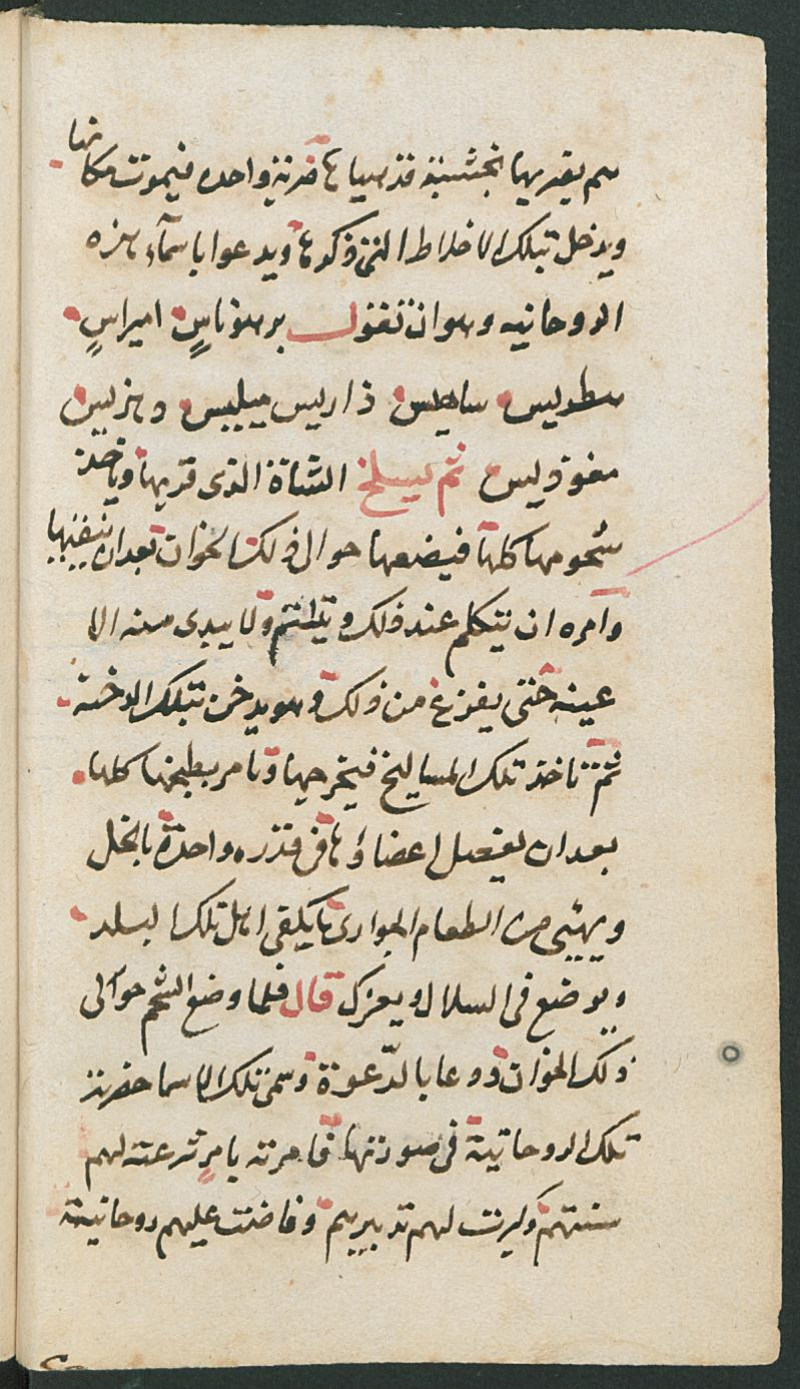 ثم يضربها بخشبة قد هيأها ضربة واحدة فيموت مكانها
ويدخل تبلك الاخلاط التى ذكرها ويدعوا باسمآء هزه
الروحانيه وهوان تقول برهوناسٍ اميراسٍ
سطريس ساهيس ذاريس ميليس وهزيس
مغوذيس ثم يسلخ الشاة الذى قربها وياخذ
شحومها كلها فيضعها حوالى ذلك الخوان بعدان ينقيها
وامره ان يتكلم عند ذلك ويلثتم ولا يبدى منه الا
عينه حتى يفزغ من ذلك وهو يدخن تبلك الدخنة
ثم تاخذ تلك المساليخ فيخرجها وتامر بطبخها كلها
بعدان يفصل اعضاؤها فى قدره واحدة بالخل
ويهئى من الطعام البوارى ما يكفى اهل تلك البلد
ويوضع فى السلال ويعزل قال فلما وضع الشحم حوالى
ذلك الخوان ودعا بالدّعوة وسمى تلك الاسما حضرت
تلك الروحانية فى صورتها فامرته بامر شرعته لهم
سنتهم وكبرت لهم تدبيرهم وفاضت عليهم روحانية